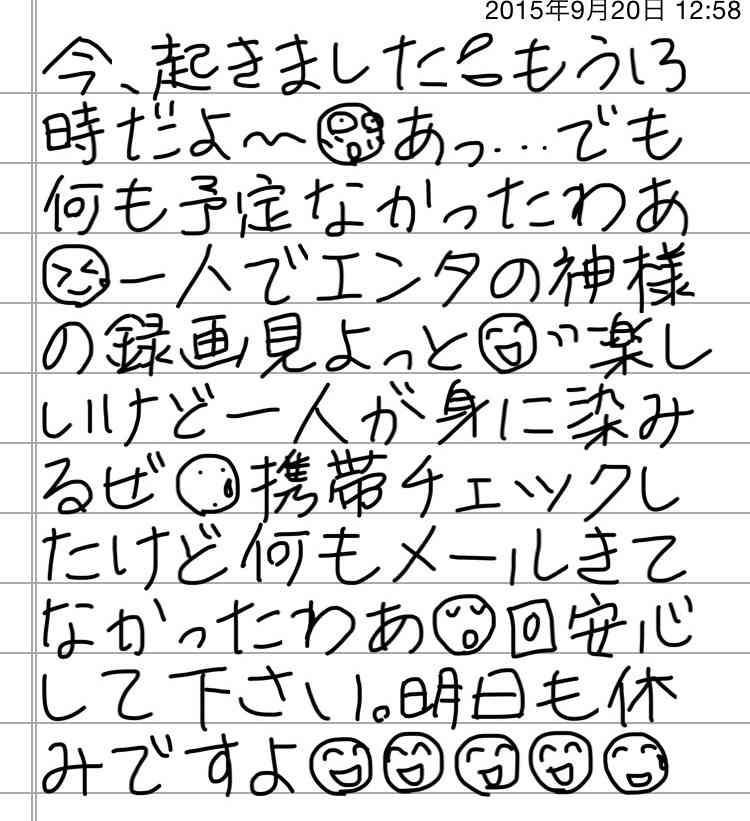 2015年9月20日 12:58
今、起きました もう13
時だよ〜 あっ…でも
何も予定なかったわあ
一人でエンタの神様
の録画見よっと 楽し
いけど一人が身に染み
るぜ 携帯チェックし
たけど何もメールきて
なかったわあ 回安心
して下さい。明日も休
みですよ